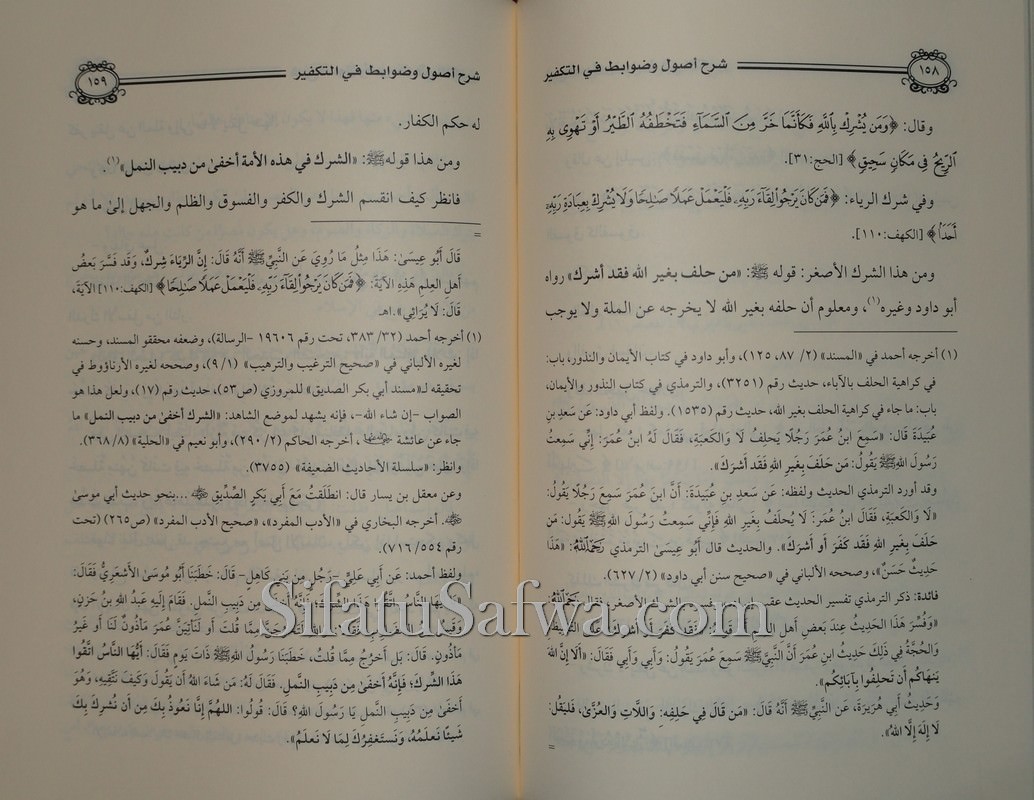 ١٥٨
شرح أصول وضوابط في التكفير
وقال: ﴿وَمَن يُشْرِكْ بِٱللَّهِ فَكَأَنَّمَا خَرَّ مِنَ ٱلسَّمَآءِ فَتَخْطَفُهُ ٱلطَّيْرُ أَوْ تَهْوِى بِهِ
ٱلرِّيحُ فِى مَكَانٍ سَحِيقٍ﴾ [الحج:٣١].
وفي شرك الرياء: ﴿فَمَن كَانَ يَرْجُوا۟ لِقَآءَ رَبِّهِۦ فَلْيَعْمَلْ عَمَلًا صَـٰلِحًا وَلَا يُشْرِكْ بِعِبَادَةِ رَبِّهِۦٓ
أَحَدًۢا﴾ [الكهف:١١٠].
ومن هذا الشرك الأصغر: قوله ﷺ: «من حلف بغير الله فقد أشرك» رواه
أبو داود وغيره(١)، ومعلوم أن حلفه بغير الله لا يخرجه عن الملة ولا يوجب
(١) أخرجه أحمد في «المسند» (٢/ ٨٧، ١٢٥)، وأبو داود في كتاب الأيمان والنذور، باب:
في كراهية الحلف بالآباء، حديث رقم (٣٢٥١)، والترمذي في كتاب النذور والأيمان،
باب: ما جاء في كراهية الحلف بغير الله، حديث رقم (١٥٣٥). ولفظ أبي داود: عَن سَعدِ بنِ
عُبَيدَةَ قال: «سَمِعَ ابنُ عُمَرَ رَجُلًا يَحلِفُ لَا وَالكَعبَةِ، فَقَالَ لَهُ ابنُ عُمَرَ: إِنِّي سَمِعتُ
رَسُولَ اللهِ ﷺ يَقُولُ: مَن حَلَفَ بِغَيرِ اللهِ فَقَد أَشرَكَ».
وقد أورد الترمذي الحديث ولفظه: عَن سَعدِ بنِ عُبَيدَةَ: أَنَّ ابنَ عُمَرَ سَمِعَ رَجُلًا يَقُولُ:
«لَا وَالكَعبَةِ، فَقَالَ ابنُ عُمَرَ: لَا يُحلَفُ بِغَيرِ اللهِ فَإِنِّي سَمِعتُ رَسُولَ اللهِ ﷺ يَقُولُ: مَن
حَلَفَ بِغَيرِ اللهِ فَقَد كَفَرَ أَو أَشرَكَ». والحديث قال أبو عِيسَىٰ الترمذي رَحِمَهُ اللَّهُ: «هَذَا
حَدِيثٌ حَسَنٌ»، وصححه الألباني في «صحيح سنن أبي داود» (٢/ ٦٢٧).
فائدة: ذكر الترمذي تفسير الحديث عقب الشرك الأصغر، فقال رَحِمَهُ اللَّهُ:
«وَفُسِّرَ هَذَا الحَدِيثُ عِندَ بَعضِ أَهلِ فَقَد كَفَرَ أَو أَشرَكَ
وَالحُجَّةُ فِي ذَلِكَ حَدِيثُ ابنِ عُمَرَ أَنَّ النَّبِيَّ ﷺ سَمِعَ عُمَرَ يَقُولُ: وَأَبِي وَأَبِي فَقَالَ: «أَلَا إِنَّ اللهَ
يَنهَاكُم أَن تَحلِفُوا بِآبَائِكُم».
وَحَدِيثُ أَبِي هُرَيرَةَ، عَنِ النَّبِيِّ ﷺ أَنَّهُ قَالَ: «مَن قَالَ فِي حَلِفِهِ: وَاللَّاتِ وَالعُزَّىٰ، فَليَقُل:
لَا إِلَهَ إِلَّا اللهُ».
=
شرح أصول وضوابط في التكفير
١٥٩
له حكم الكفار.
ومن هذا قوله ﷺ: «الشرك في هذه الأمة أخفىٰ من دبيب النمل»(١).
فانظر كيف انقسم الشرك والكفر والفسوق والظلم والجهل إلىٰ ما هو
=
قَالَ أَبُو عِيسَىٰ: هَذَا مِثلُ مَا رُوِيَ عَنِ النَّبِيِّ ﷺ أَنَّهُ قَالَ: إِنَّ الرِّيَاءَ شِركٌ، وَقَد فَسَّرَ بَعضُ
أَهلِ العِلمِ هَذِهِ الآيَةَ: ﴿فَمَن كَانَ يَرْجُوا۟ لِقَآءَ رَبِّهِۦ فَلْيَعْمَلْ عَمَلًا صَـٰلِحًا﴾ [الكهف:١١٠] الآيَةَ،
قَالَ: لَا يُرَائِي».اهـ
(١) أخرجه أحمد (٣٢/ ٣٨٣، تحت رقم ١٩٦٠٦ -الرسالة)، وضعفه محققو المسند، وحسنه
لغيره الألباني في «صحيح الترغيب والترهيب» (١/ ٩)، وصححه لغيره الأرناؤوط في
تحقيقه لـ«مسند أبي بكر الصديق» للمروزي (ص٥٣)، حديث رقم (١٧)، ولعل هذا هو
الصواب -إن شاء الله-، فإنه يشهد لموضع الشاهد: «الشرك أخفىٰ من دبيب النمل» ما
جاء عن عائشة رضي الله عنها، أخرجه الحاكم (٢/ ٢٩٠)، وأبو نعيم في «الحلية» (٨/ ٣٦٨)
وانظر: «سلسلة الأحاديث الضعيفة» (٣٧٥٥).
وعن معقل بن يسار قال: انطَلَقتُ مَعَ أَبِي بَكرٍ الصِّدِّيقِ ﵁ ...بنحو حديث أبي موسىٰ
﵁. أخرجه البخاري في «الأدب المفرد»، «صحيح الأدب المفرد» (ص٢٦٥) (تحت
رقم ٥٥٤/ ٧١٦).
ولفظ أحمد: عَن أَبِي عَلِيٍّ -رَجُلٍ مِن بَنِي كَاهِلٍ- قَالَ: خَطَبَنَا أَبُو مُوسَىٰ الأَشعَرِيُّ فَقَالَ:
أَيُّهَا النَّاسُ اتَّقُوا هَذَا الشِّركَ؛ فَإِنَّهُ أَخفَىٰ مِن دَبِيبِ النَّملِ. فَقَامَ إِلَيهِ عَبدُ اللهِ بنُ حَزنٍ،
وَقَيسُ بنُ مِمَّا قُلتَ أَو لَنَأتِيَنَّ عُمَرَ مَأذُونٌ لَنَا أَو غَيرُ
مَأذُونٍ. قَالَ: بَل أَخرُجُ مِمَّا قُلتُ، خَطَبَنَا رَسُولُ اللهِ ﷺ ذَاتَ يَومٍ فَقَالَ: أَيُّهَا النَّاسُ اتَّقُوا
هَذَا الشِّركَ؛ فَإِنَّهُ أَخفَىٰ مِن دَبِيبِ النَّملِ. فَقَالَ لَهُ: مَن شَاءَ اللهُ أَن يَقُولَ وَكَيفَ نَتَّقِيهِ، وَهُوَ
أَخفَىٰ مِن دَبِيبِ النَّملِ يَا رَسُولَ اللهِ؟ قَالَ: قُولُوا: اللهُمَّ إِنَّا نَعُوذُ بِكَ مِن أَن نُشرِكَ بِكَ
شَيئًا نَعلَمُهُ، وَنَستَغفِرُكَ لِمَا لَا نَعلَمُ».
SifatuSafwa.com